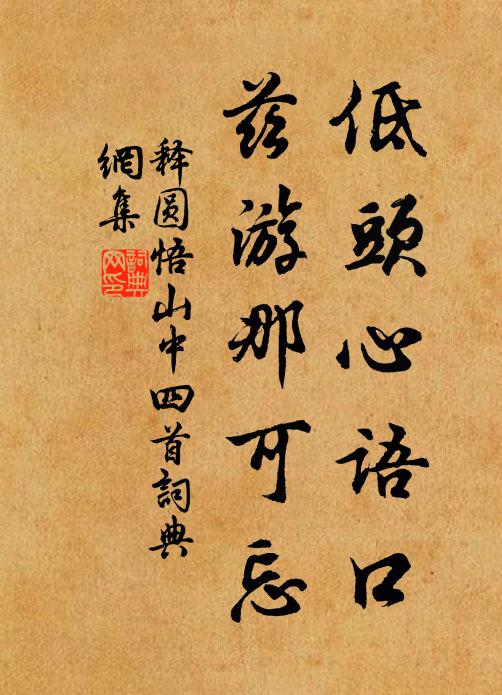 低頭心語口
茲游那可忘
释圆悟山中四首詞典
網集
詞典网印